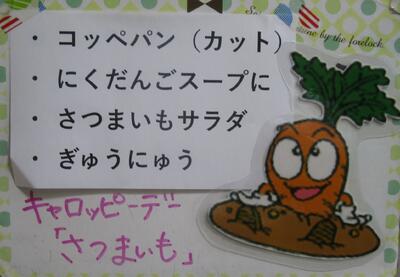 ・コッペパン（カット）
・にくだんごスープに
・さつまいもサラダ
・ぎゅうにゅう
キャロッピーデー
「さつまいも」
by the forelock.